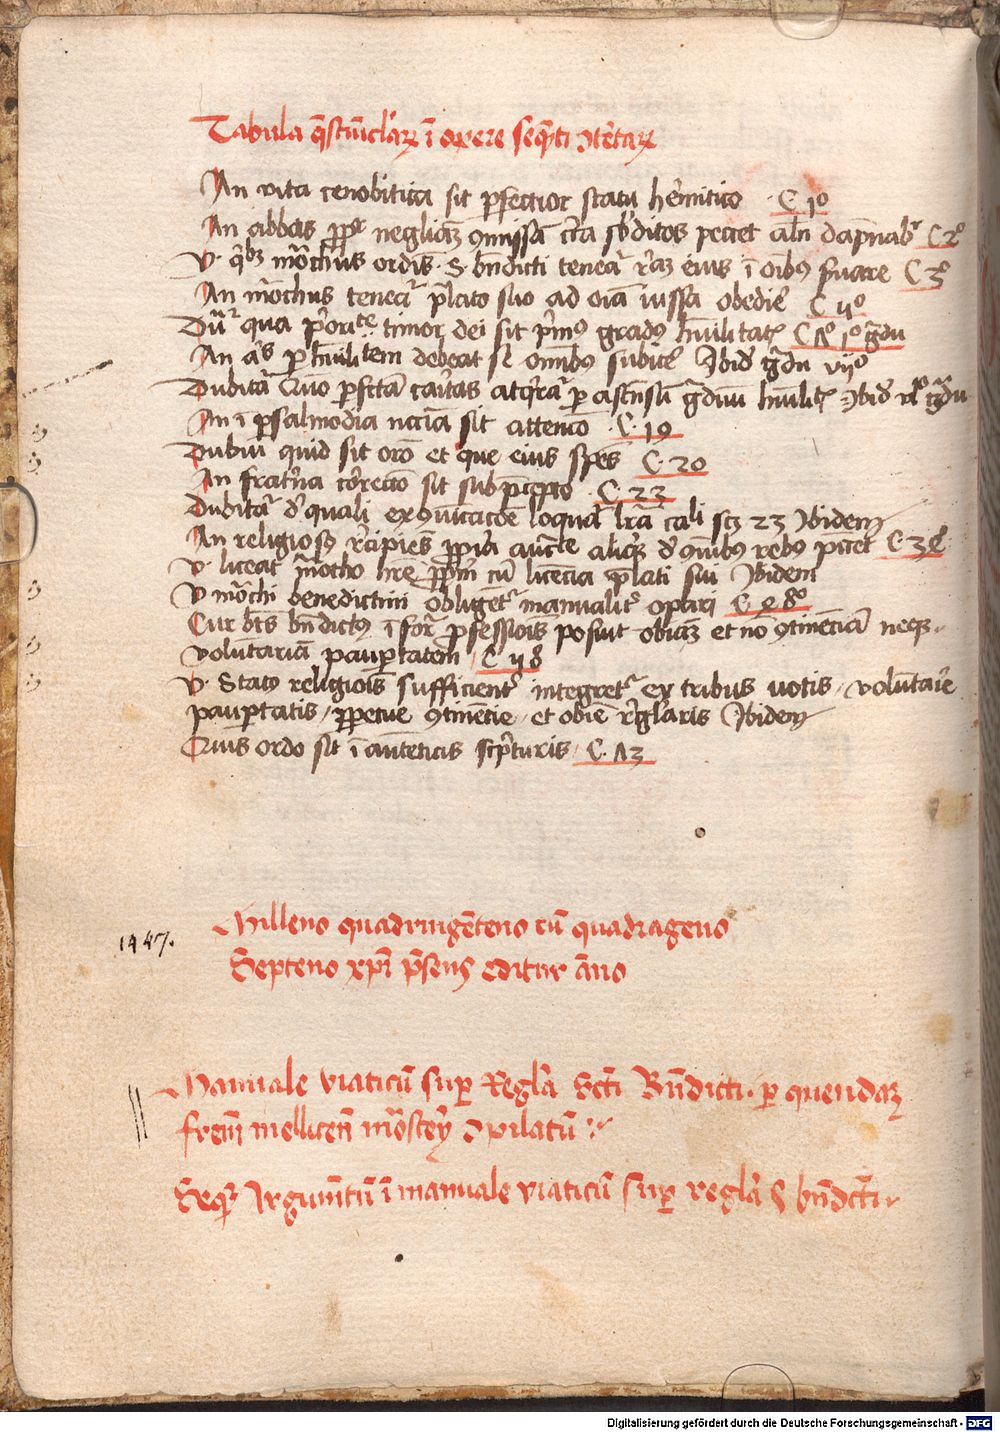 Tabula q̄stiūclaꝝ ī opere seqn̄ti ↄtētaꝝ
An vita cenobitica sit ꝑfectior statu hēmitico · C 1º
An abbas ꝓpt neglīaꝫ ↄmissā cͥca sb̓ditos peccet al̄n dāpnabr C 2º
V. qͥlibꝫ mōchus ordīs · S · bn̄dicti teneat r̄laꝫ eius ī oībus ẜuare C 3º
An mōchus teneat p̄lato suo ad oīa iussa obedire C 4º
Dūr qua p̓oritate timor dei sit p̓mus gradus hūilitatis C 7º 1º gͣdu
An aͥs ꝑ hūilitem debeat se omībus subicere Ibidē gͣdu vijº
Dubitat̄ Quo ꝑfcta caritas atqͥrat̄ ꝑ ascensū gͣduū hūilitatis Ibidē xijº gͣdu
An ī psalmodia nccīa sit attencō · C · 19
Dubiū quid sit orō et que eius spēs C · 20
An fratrna cōreccō sit sub p̄cepto C · 23
Dubitat̄ dͤ quali exↄmunicacōe loquat̄ lr̄a cali scꝫ 23 Ibidem
An religiosus recipiēs ꝓpria aucte aliqͥs dͤ omībus rebus peccet C · 34
V. liceat mōcho hr̄e ꝓpriū cū licencia p̄lati sui Ibidem
V mōchi benedictini obligēt manualit̄ opari C 48º
Cur bt̄s bn̄dictus ī forma ꝓfessiois posuit obīaꝫ et nō ↄtinēciā neqꝫ
voluntariā pauꝑtatem C 58
V · Status religiois sufficient̄ integret̄ ex tribus votis / voluntarie
pauꝑtatis / ꝓpetue ↄtinētie / et obīe r̄glaris Ibidem
Quis ordo sit ī autēticis scpturis / C · 73
1447.
Milleno quadringēteno cū quadrageno
Septeno xp̄i p̄sens editur āno
Manuale viaticū suꝑ Reglā Sctī Bn̄dicti · ꝑ quendaꝫ
frem̄ mellicen̄ mōstery ↄpilatū
Seqt̄ Argumtū ī manuale viaticū suꝑ reglā S bn̄dcti
Digitalisierung gefördert durch die Deutsche Forschungsgemeinschaft - DFG